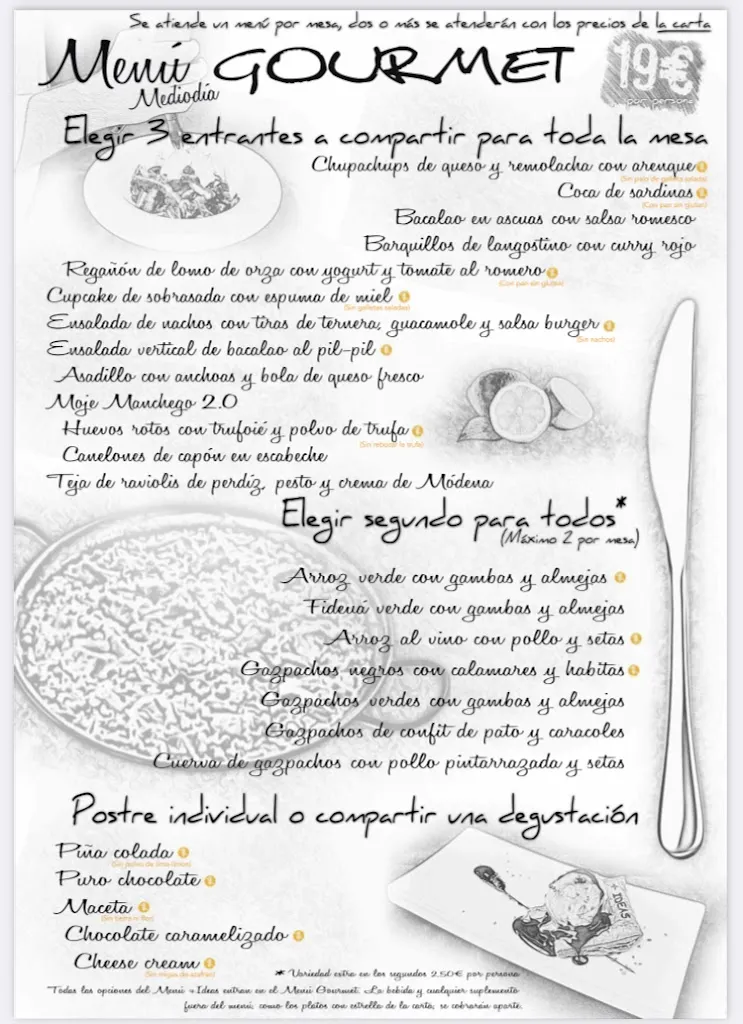 Se atiende un menú por mesa, dos o más se atenderán con los precios de la carta
Menú GOURMET
19€
por persona
Mediodía
Elegir 3 entrantes a compartir para toda la mesa
Chupachups de queso y remolacha con arenque
Coca de sardinas
(Con pan sin gluten)
Bacalao en ascuas con salsa romesco
Barquillos de langostino con curry rojo
Regañón de lomo de orza con yogurt y tomate al romero
(Con pan sin gluten)
Cupcake de sobrasada con espuma de miel
(Sin galletas saladas)
Ensalada de nachos con tiras de ternera, guacamole y salsa burger
(Sin nachos)
Ensalada vertical de bacalao al pil-pil
Asadillo con anchoas y bola de queso fresco
Moje Manchego 2.0
Huevos rotos con trufoié y polvo de trufa
Canelones de capón en escabeche
Teja de raviolis de perdíz, pesto y crema de Módena
Elegir segundo para todos*
(Máximo 2 por mesa)
Arroz verde con gambas y almejas
Fideuá verde con gambas y almejas
Arroz al vino con pollo y setas
Gazpachos negros con calamares y habitas
Gazpachos verdes con gambas y almejas
Gazpachos de confit de pato y caracoles
Cuerva de gazpachos con pollo pintarrazada y setas
Postre individual o compartir una degustación
Piña colada
Puro chocolate
Maceta
Chocolate caramelizado
Cheese cream
+ IDEAS
* Variedad extra en los segundos 2.50€ por persona
*Todas las opciones del Menú +Ideas entran en el Menú Gourmet. La bebida y cualquier suplemento
fuera del menú, como los platos con estrella de la carta, se cobrarán aparte.